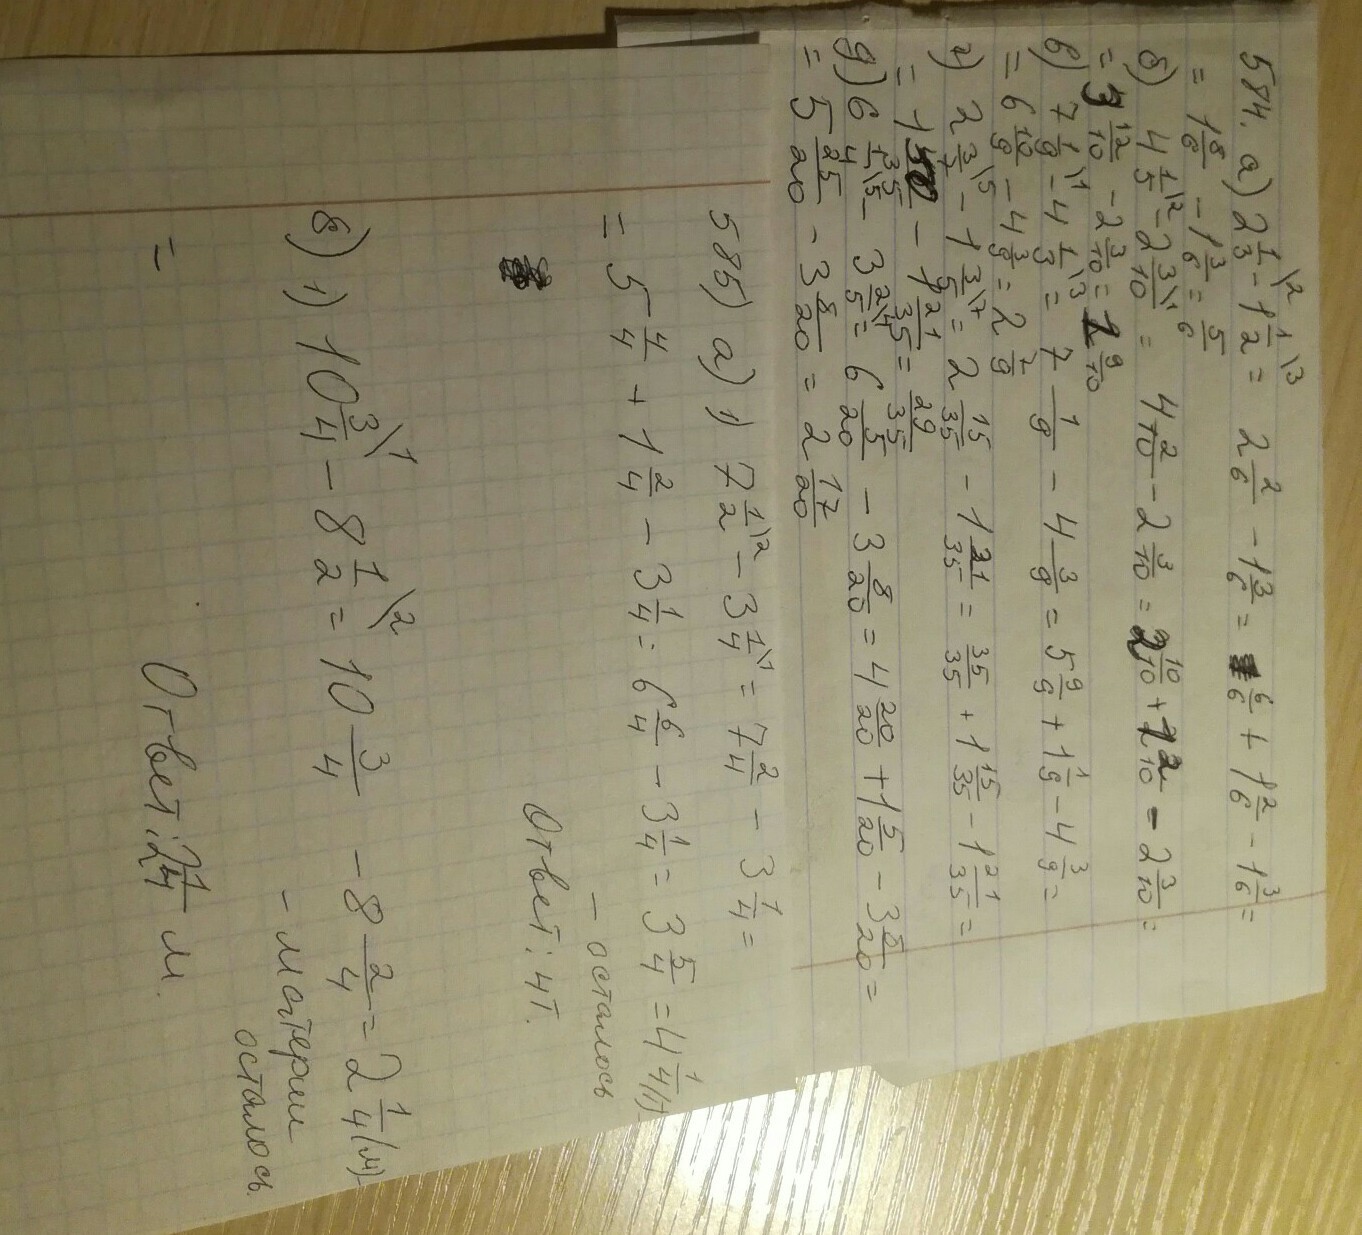 584. а) 2 1/3\2 - 1 1/2\3 = 2 2/6 - 1 3/6 = 6/6 + 1 2/6 - 1 3/6 =
= 1 8/6 - 1 3/6 = 5/6
б) 4 1/5\2 - 2 3/10\1 = 4 2/10 - 2 3/10 = 2 10/10 + 1 2/10 - 2 3/10 =
= 3 12/10 - 2 3/10 = 1 9/10
в) 7 1/9\1 - 4 1/3\3 = 7 1/9 - 4 3/9 = 5 9/9 + 1 1/9 - 4 3/9 =
= 6 10/9 - 4 3/9 = 2 7/9
г) 2 3/7\5 - 1 3/5\7 = 2 15/35 - 1 21/35 = 35/35 + 1 15/35 - 1 21/35 =
= 1 50/35 - 1 21/35 = 29/35
д) 6 1/4\5 - 3 2/5\4 = 6 5/20 - 3 8/20 = 4 20/20 + 1 5/20 - 3 8/20 =
= 5 25/20 - 3 8/20 = 2 17/20
585) а) 1) 7 1/2\2 - 3 1/4\1 = 7 2/4 - 3 1/4 =
= 5 4/4 + 1 2/4 - 3 1/4 = 6 6/4 - 3 1/4 = 3 5/4 = 4 1/4 (т)
- осталось
Ответ: 4т.
б) 1) 10 3/4\1 - 8 1/2\2 = 10 3/4 - 8 2/4 = 2 1/4 (м) -
- материи
осталось.
=
Ответ: 2 1/4 м.